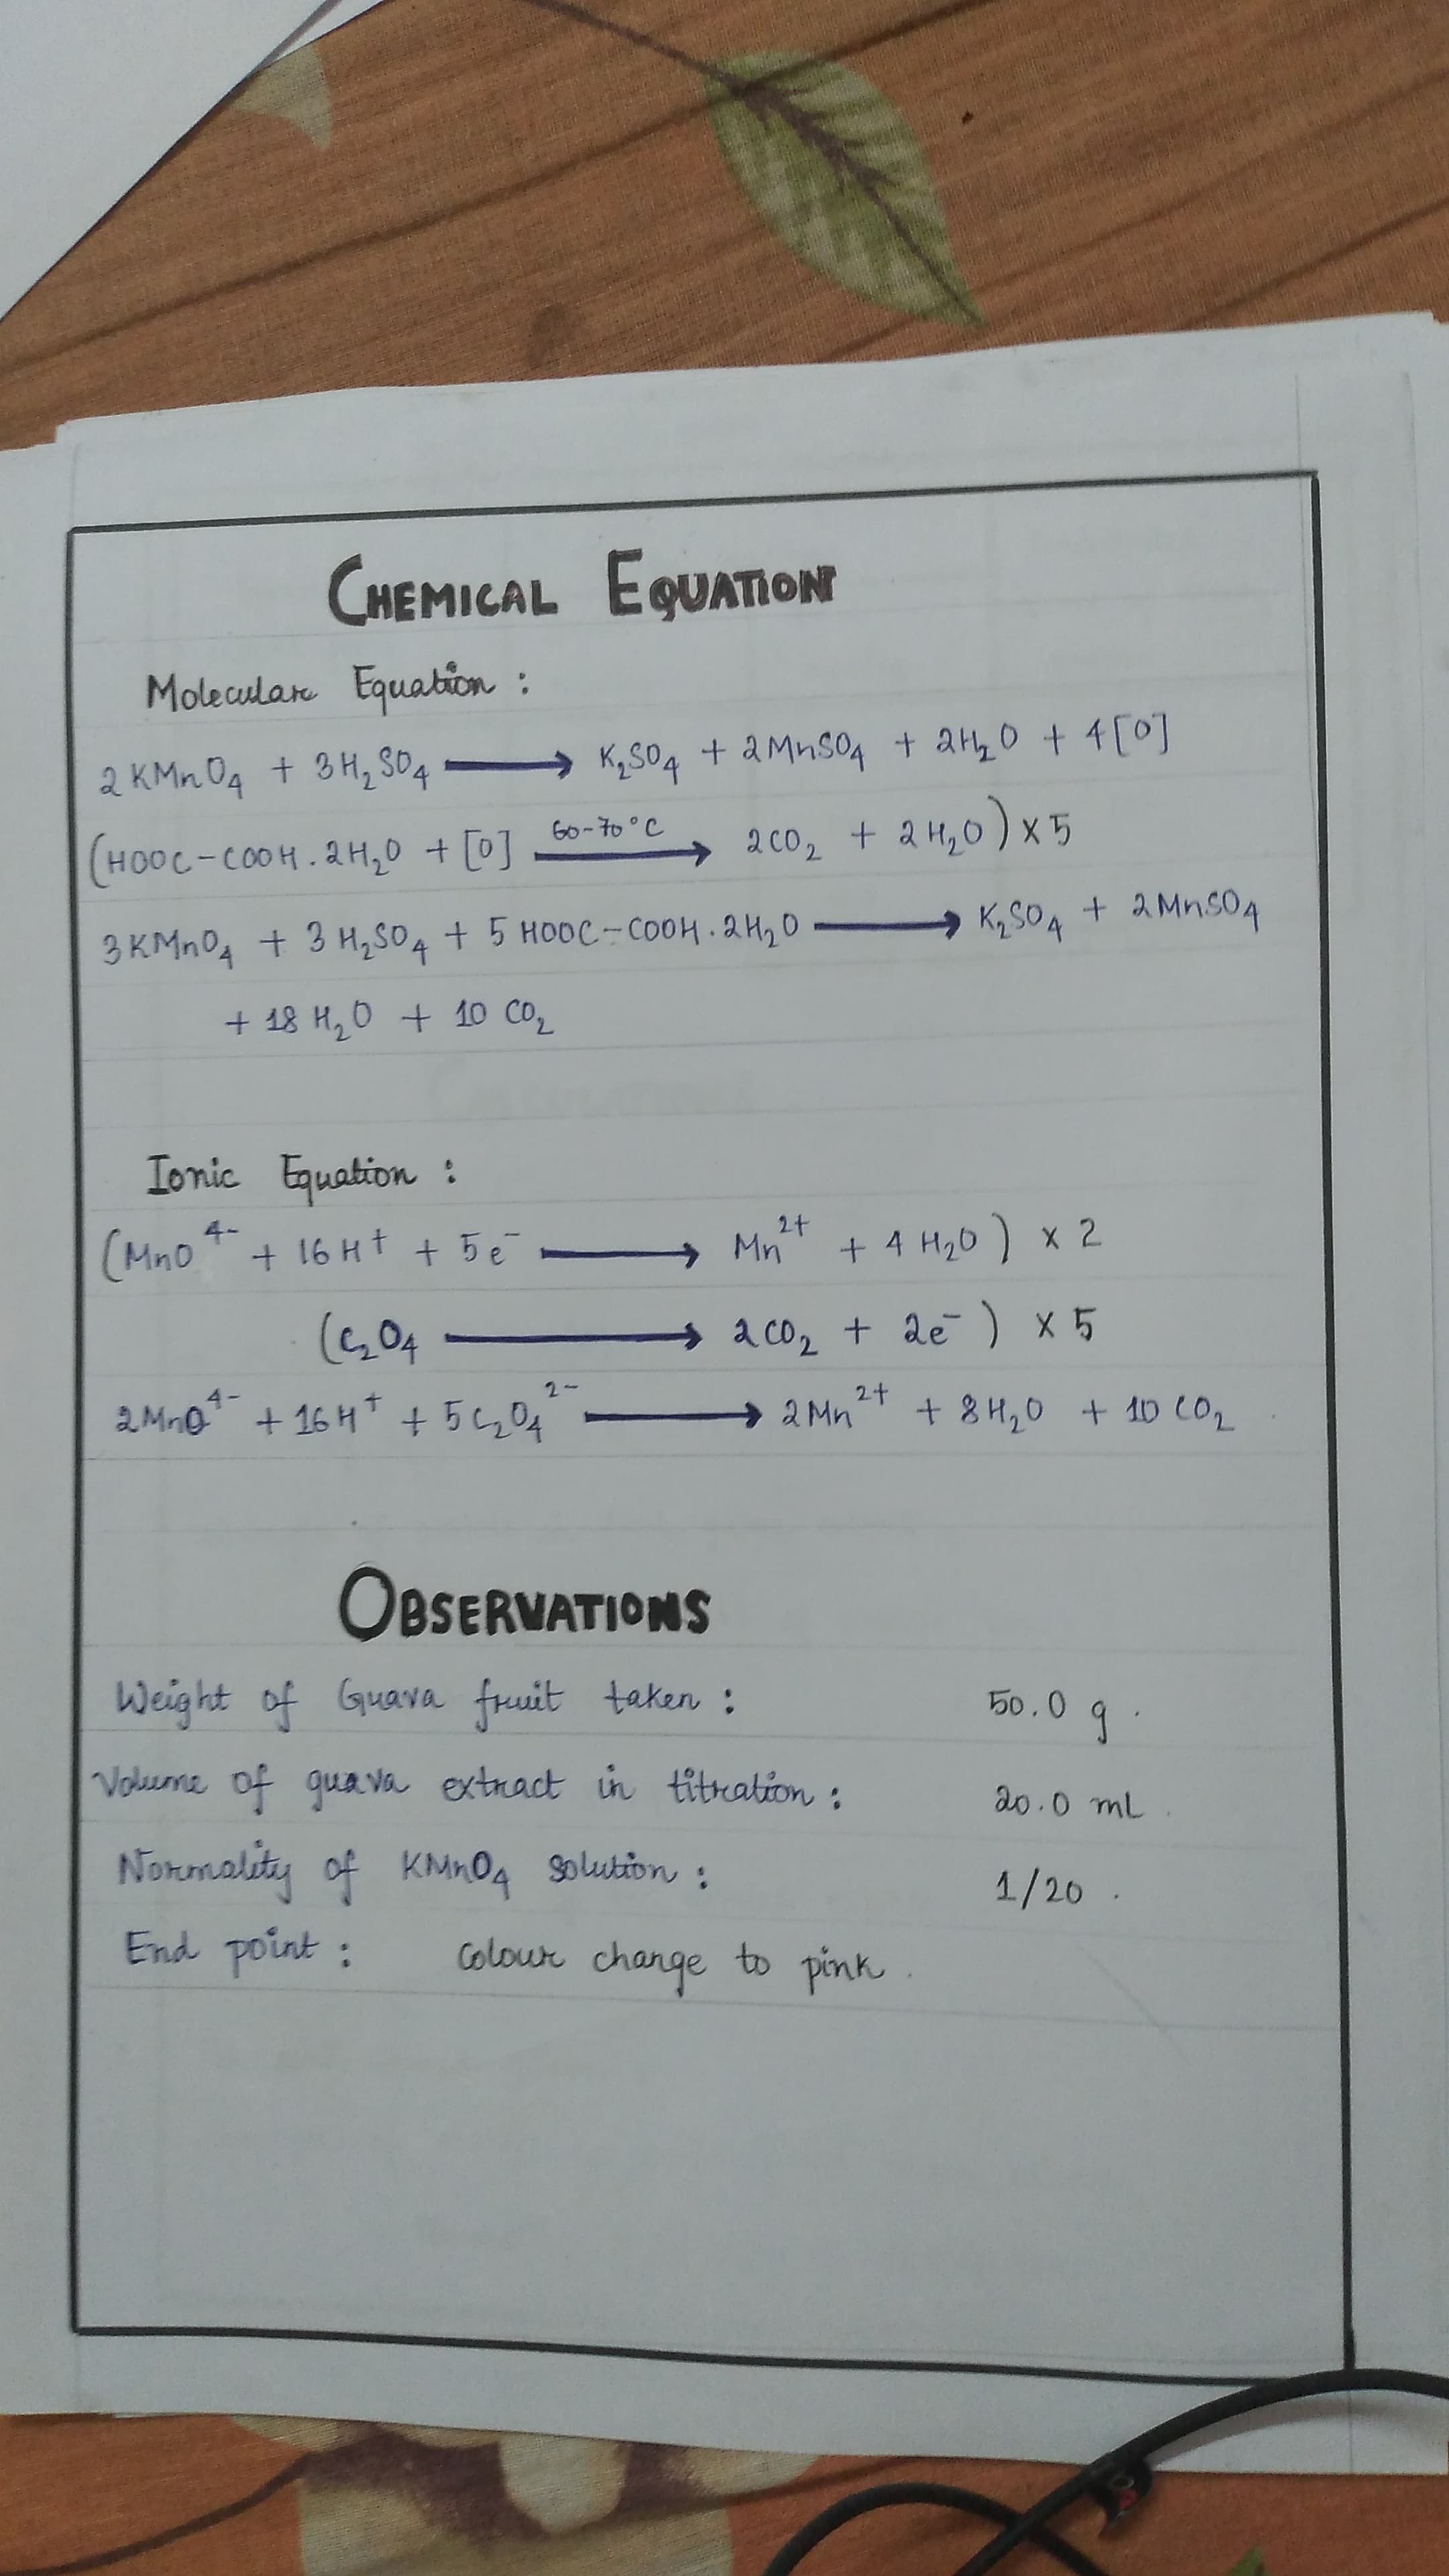 CHEMICAL EQUATION
Molecular Equation :
2KMnO₄ + 3H₂SO₄ ⟶ K₂SO₄ + 2MnSO₄ + 2H₂O + 4[O]
(HOOC-COOH.2H₂O + [O] 60-70°C ⟶ 2CO₂ + 2H₂O) x 5
3KMnO₄ + 3H₂SO₄ + 5HOOC-COOH.2H₂O ⟶ K₂SO₄ + 2MnSO₄
+ 18H₂O + 10 CO₂
Ionic Equation :
(MnO⁴⁻ + 16H⁺ + 5e⁻ ⟶ Mn²⁺ + 4H₂O) x 2
(C₂O₄ ⟶ 2CO₂ + 2e⁻) x 5
2MnO⁴⁻ + 16H⁺ + 5C₂O₄²⁻ ⟶ 2Mn²⁺ + 8H₂O + 10CO₂
OBSERVATIONS
Weight of Guava fruit taken : 50.0 g.
Volume of guava extract in titration : 20.0 mL.
Normality of KMnO₄ solution : 1/20.
End point : Colour change to pink.